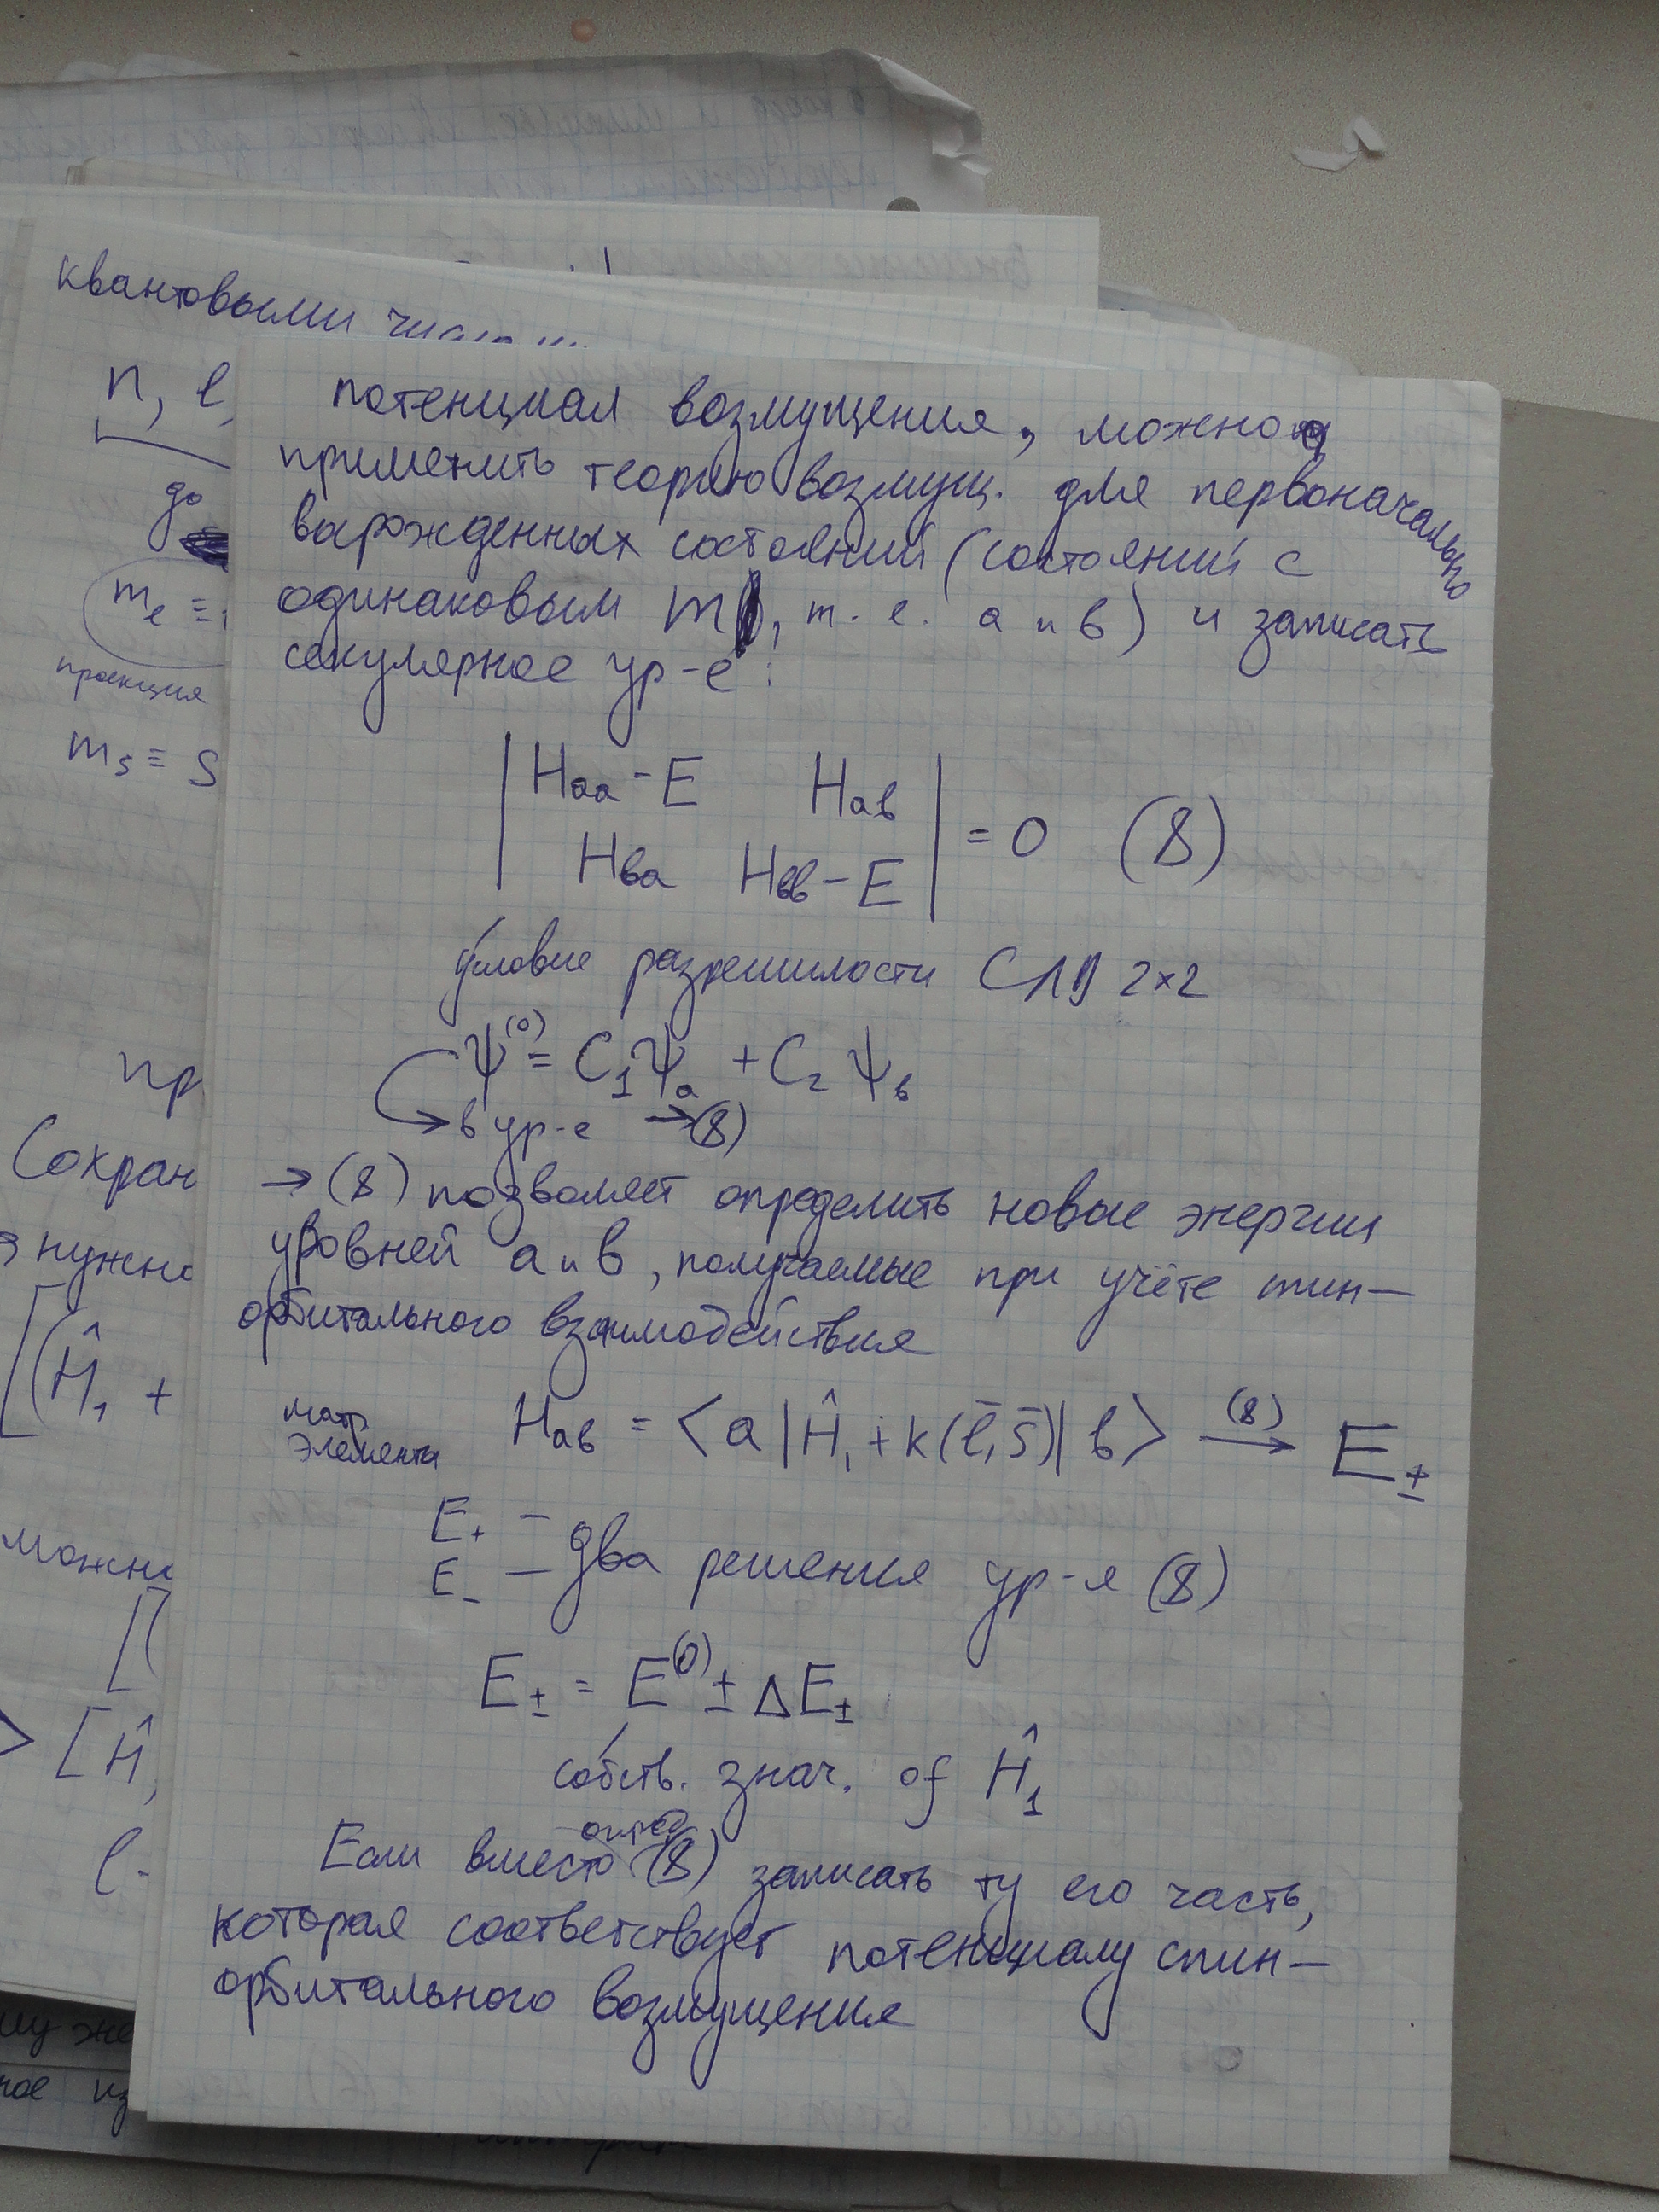 квантовыми
n, l,
до
mₑ ≡
проекция
mₛ ≡ S
пр
Сохран
нужно
[(Ĥ₁ +
можно
[(
> [Ĥ,
l-
потенциал возмущения, можно
применить теорию возмущ. для первоначально
вырожденных состояний (состояний с
одинаковым m, т.е. a и b) и записать
секулярное ур-е:
| Haa - E   Hab |
| Hba   Hbb - E | = 0 (8)
условие разрешимости СЛУ 2×2
Ψ⁽⁰⁾ = C₁Ψa + C₂Ψb
в ур-е → (8)
→ (8) позволяет определить новые энергии
уровней a и b, получаемые при учёте спин-
орбитального взаимодействия
матр.
элементы
Hab = <a|Ĥ₁ + k(l̄, s̄)|b> (8)→ E±
E₊ -
E₋ — два решения ур-я (8)
E± = E⁽⁰⁾ ± ΔE±
собств. знач. of Ĥ₁
Если вместо опред (8) записать ту его часть,
которая соответствует потенциалу спин-
орбитального возмущения